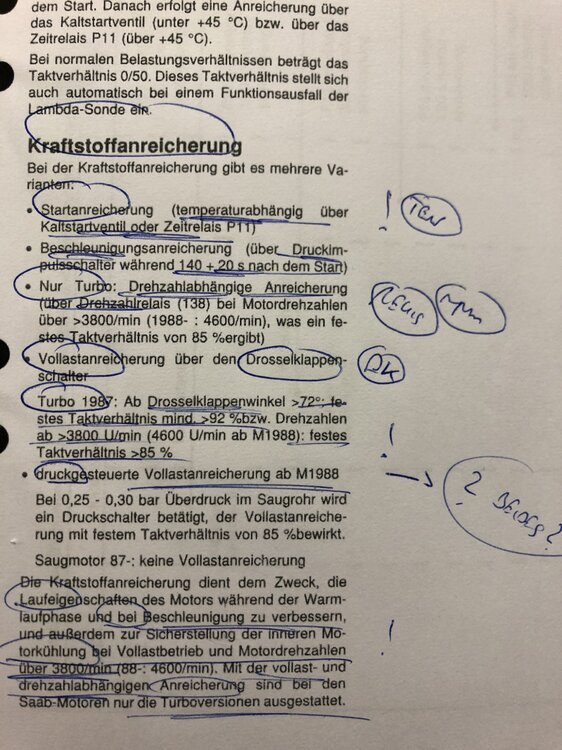 dem Start. Danach erfolgt eine Anreicherung über
das Kaltstartventil (unter +45 °C) bzw. über das
Zeitrelais P11 (über +45 °C).
Bei normalen Belastungsverhältnissen beträgt das
Taktverhältnis 0/50. Dieses Taktverhältnis stellt sich
auch automatisch bei einem Funktionsausfall der
Lambda-Sonde ein.
Kraftstoffanreicherung
Bei der Kraftstoffanreicherung gibt es mehrere Va-
rianten:
• Startanreicherung (temperaturabhängig über ! TEN
Kaltstartventil oder Zeitrelais P11)
• Beschleunigungsanreicherung (über Druckim-
pulsschalter während 140 + 20 s nach dem Start)
• Nur Turbo: Drehzahlabhängige Anreicherung
(über Drehzahlrelais (138) bei Motordrehzahlen
über >3800/min (1988- : 4600/min), was ein fe-
stes Taktverhältnis von 85 %ergibt)
• Vollastanreicherung über den Drosselklappen- DK
schalter
Turbo 1987: Ab Drosselklappenwinkel >72°: fe-
stes Taktverhältnis mind. >92 %bzw. Drehzahlen
ab >3800 U/min (4600 U/min ab M1988): festes !
Taktverhältnis >85 %
• druckgesteuerte Vollastanreicherung ab M1988
Bei 0,25 - 0,30 bar Überdruck im Saugrohr wird ? BEIDES?
ein Druckschalter betätigt, der Vollastanreiche-
rung mit festem Taktverhältnis von 85 %bewirkt.
Saugmotor 87-: keine Vollastanreicherung
Die Kraftstoffanreicherung dient dem Zweck, die
Laufeigenschaften des Motors während der Warm-
laufphase und bei Beschleunigung zu verbessern,
und außerdem zur Sicherstellung der inneren Mo- !
torkühlung bei Vollastbetrieb und Motordrehzahlen
über 3800/min (88-: 4600/min). Mit der vollast- und
drehzahlabhängigen Anreicherung sind bei den
Saab-Motoren nur die Turboversionen ausgestattet.